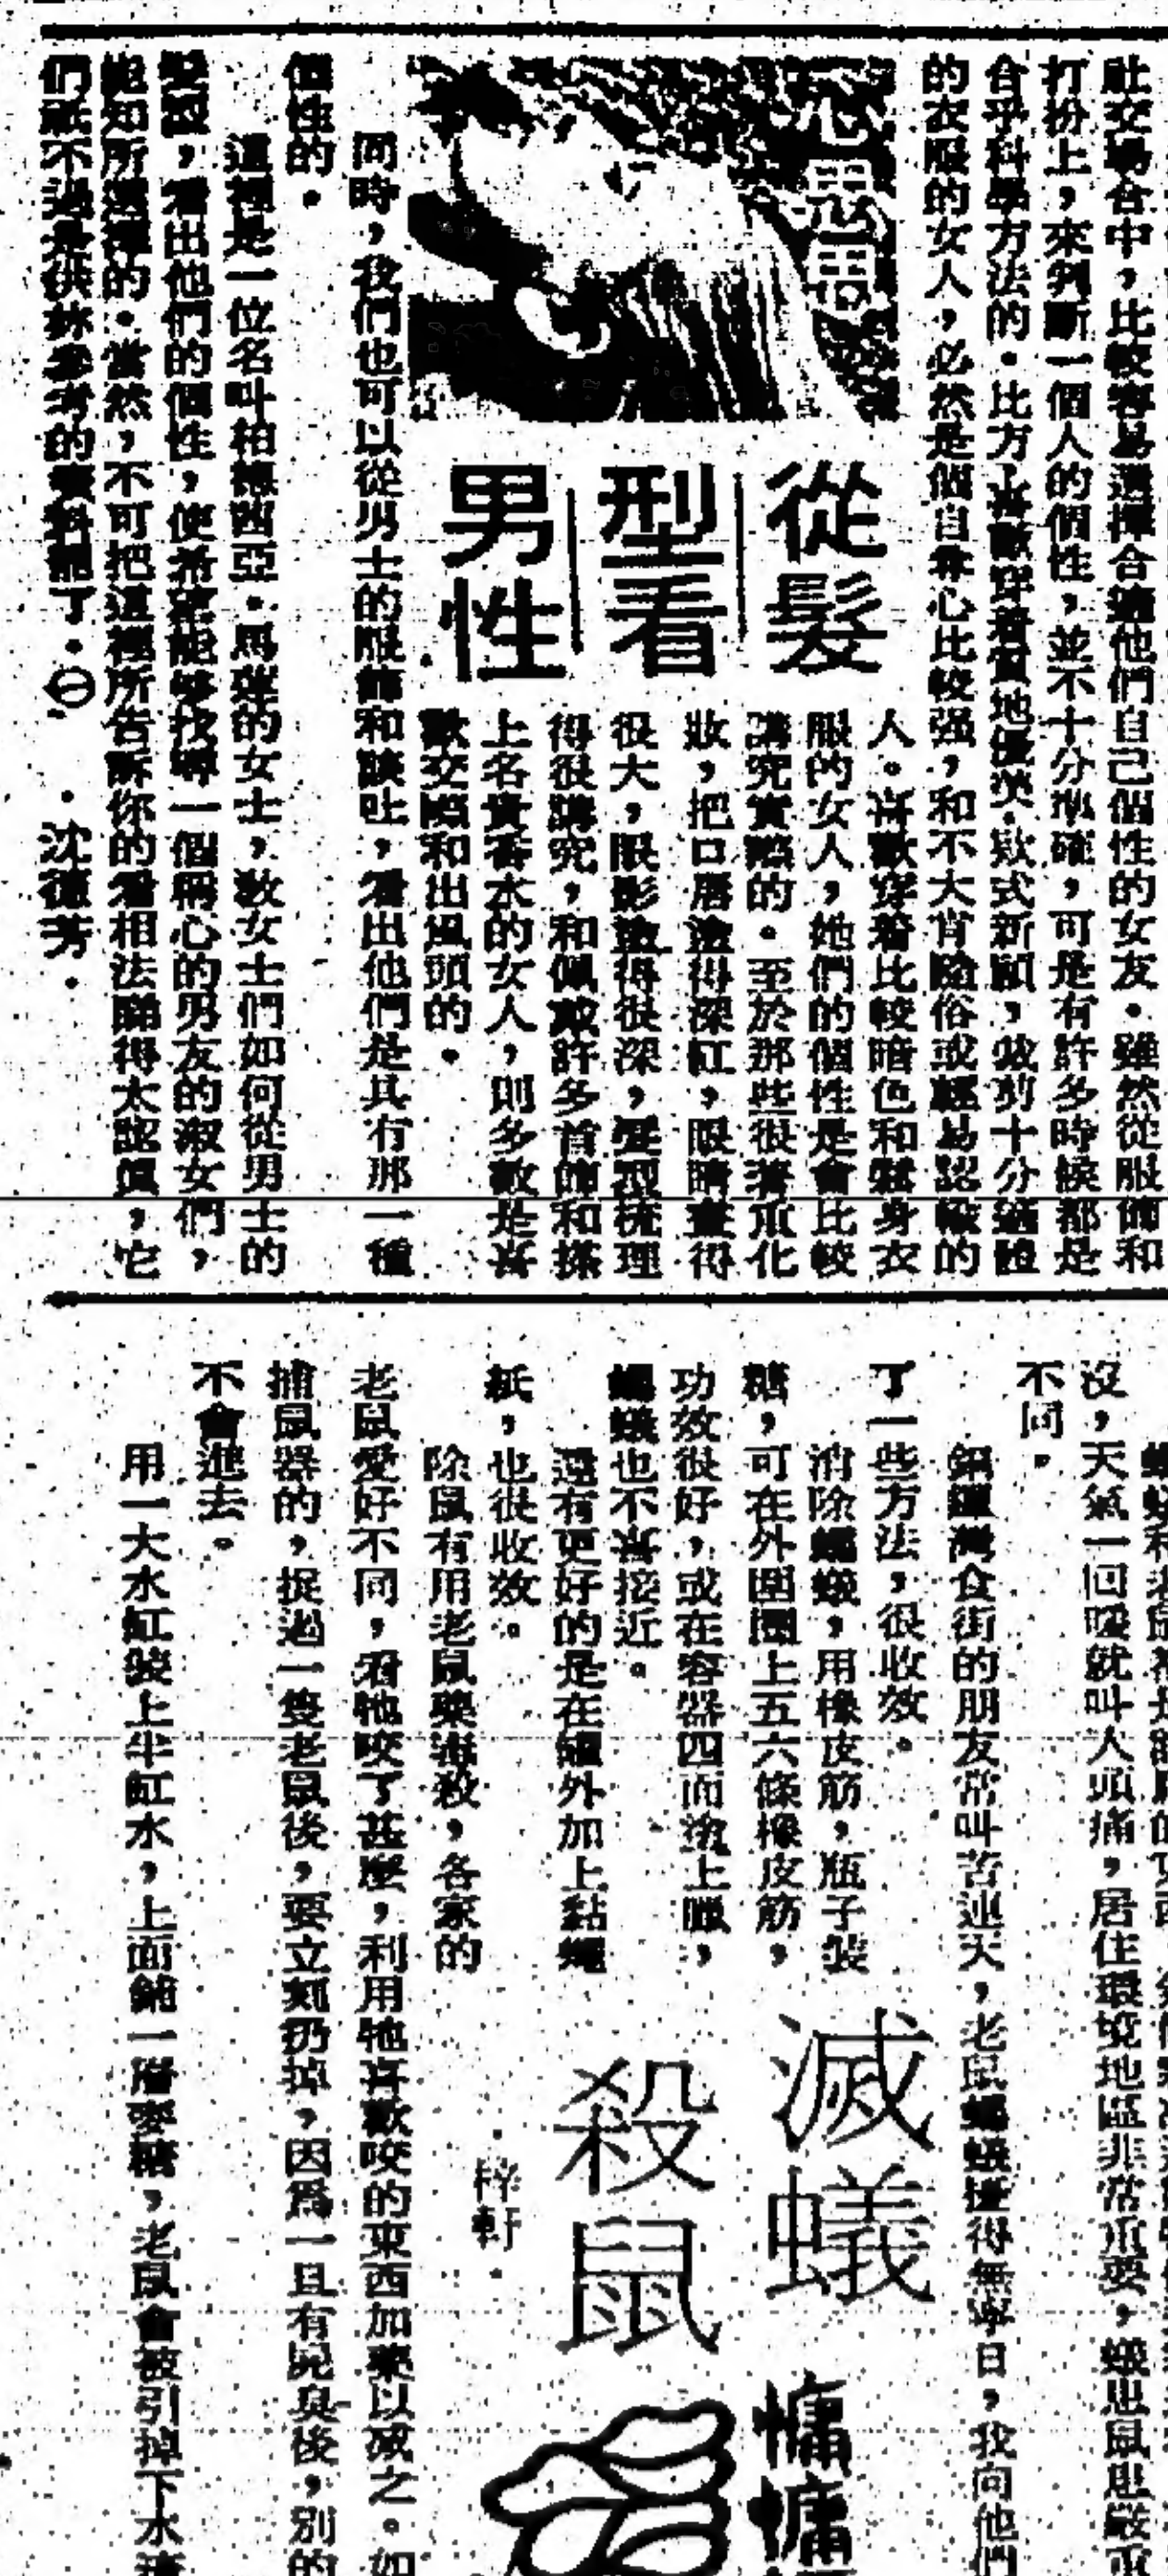 社交場合中，比較容易選擇合適他們自己個性的女友．雖然從服飾和
打扮上，來判斷一個人的個性，並不十分準確，可是有許多時候都是
合乎科學方法的．比方喜歡穿着質地優美．欵式新穎，裁剪十分適體
的衣服的女人，必然是個自尊心比較强，和不大肯隨俗或輕易認輸的
人。喜歡穿着比較暗色和緊身衣
服的女人，她們的個性是會比較
講究實際的．至於那些很著重化
妝，把口唇塗得深紅，眼睛畫得
很大，眼影塗得很深，髮型梳理
得很講究，和佩戴許多首飾和搽
上名貴香水的女人，則多數是喜
歡交際和出風頭的．
從髮
型看
男性
同時，我們也可以從男士的服飾和談吐，看出他們是具有那一種
個性的．
這裡是一位名叫柏德西亞．馬蓮的女士，教女士們如何從男士的
髮型，看出他們的個性，使希望能够找尋一個稱心的男友的淑女們，
能知所選擇的．當然，不可把這裡所告訴你的看相法睇得太認眞，它
們祇不過是供妳參考的資料罷了．㊀　．沈德芳．
沒，天氣一回暖就叫人頭痛，居住環境地區非常重要，蟻患鼠患嚴重
不同。
銅鑼灣食街的朋友常叫苦連天，老鼠螞蟻擾得無寧日，我向他們
了一些方法，很收效。
消除螞蟻，用橡皮筋，瓶子裝
糖，可在外圍圈上五六條橡皮筋，
功效很好，或在容器四面塗上臘，
螞蟻也不喜接近。
還有更好的是在罐外加上黏蠅
紙，也很收效。
滅蟻
殺鼠
．梓軒．
慵慵
除鼠有用老鼠藥毒殺，各家的
老鼠愛好不同，看牠咬了甚麼，利用牠喜歡咬的東西加藥以滅之。如
捕鼠器的，捉過一隻老鼠後，要立刻扔掉，因爲一旦有屍臭後，別的
不會進去。
用一大水缸裝上半缸水，上面鋪一層麥糠，老鼠會被引掉下水